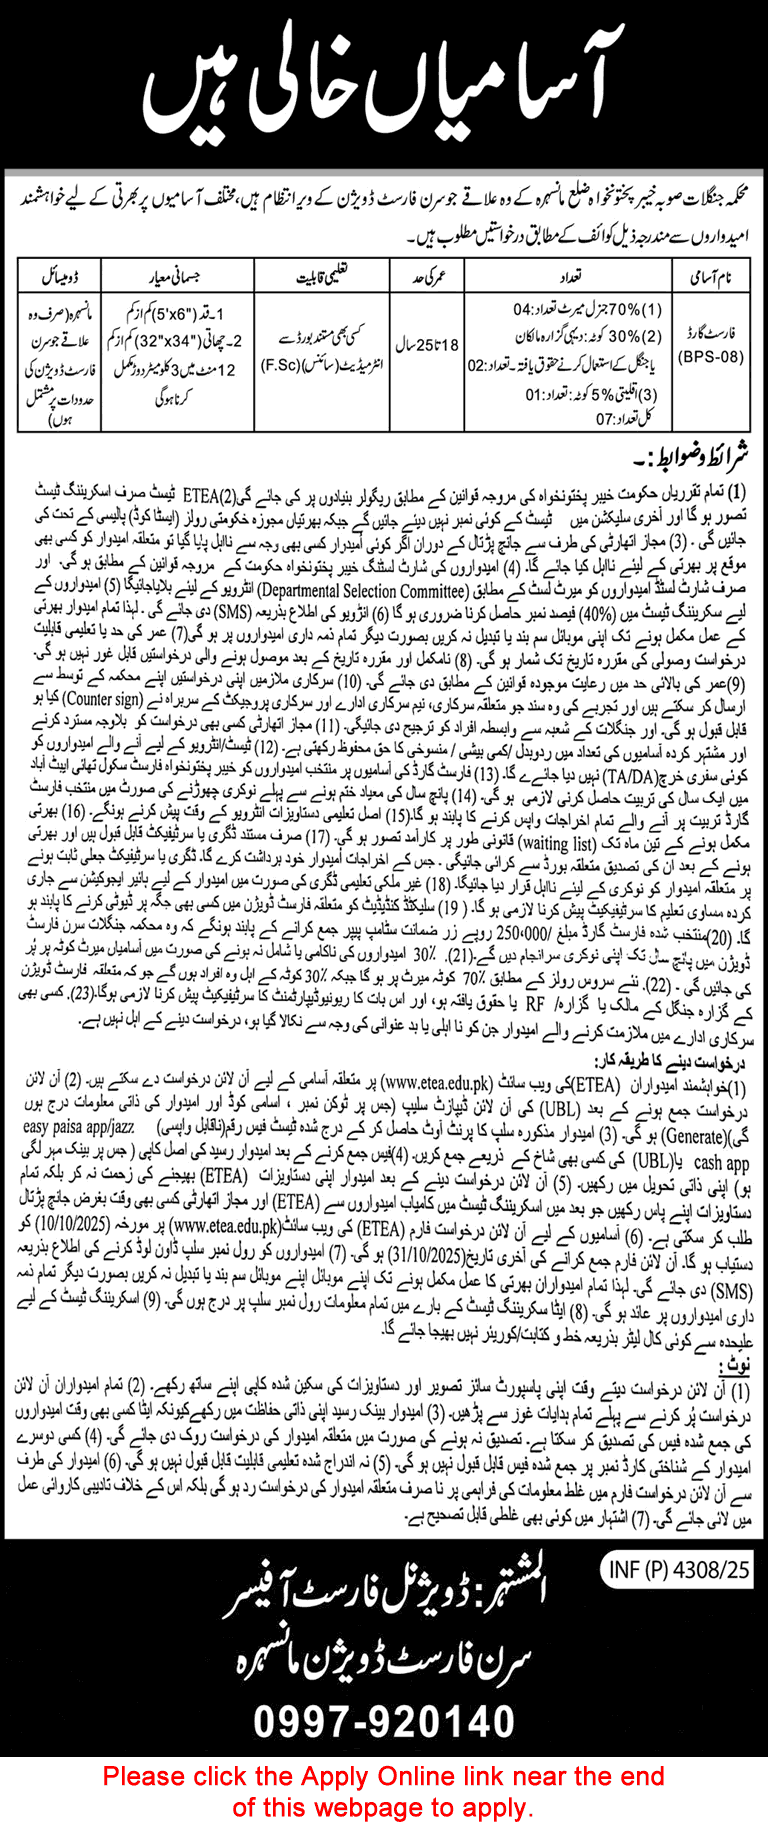 آسامیاں خالی ہیں
محکمہ جنگلات صوبہ خیبر پختونخواہ ضلع مانسہرہ کے وہ علاقے جو سرن فارسٹ ڈویژن کے زیر انتظام ہیں، مختلف آسامیوں پر بھرتی کے لیے خواہشمند
امیدواروں سے مندرجہ ذیل کوائف کے مطابق درخواستیں مطلوب ہیں۔
نام آسامی تعداد عمر کی حد تعلیمی قابلیت جسمانی معیار ڈومیسائل
فارسٹ گارڈ
(BPS-08)
(1) 70% جنرل میرٹ تعداد: 04
(2) 30% کوٹہ: دیہی گزارہ مالکان
یا جنگل کے استعمال کرنے حقوق یافتہ۔ تعداد: 02
(3) اقلیتی 5% کوٹہ: تعداد: 01
کل تعداد: 07
18 تا 25 سال
کسی بھی مستند بورڈ سے
انٹرمیڈیٹ (سائنس) (F.Sc)
1۔ قد (5'x6") کم از کم
2۔ چھاتی (32"x34") کم از کم
12 منٹ میں 3 کلومیٹر دوڑ مکمل
کرنا ہوگی
مانسہرہ (صرف وہ
علاقے جو سرن
فارسٹ ڈویژن کی
حدودات پر مشتمل
ہوں)
شرائط و ضوابط:۔
(1) تمام تقرریاں حکومت خیبر پختونخواہ کی مروجہ قوانین کے مطابق ریگولر بنیادوں پر کی جائے گی (2) ETEA ٹیسٹ صرف اسکریننگ ٹیسٹ
تصور ہو گا اور آخری سلیکشن میں ٹیسٹ کے کوئی نمبر نہیں دیئے جائیں گے جبکہ بھرتیاں مجوزہ حکومتی رولز (ایسٹا کوڈ) پالیسی کے تحت کی
جائیں گی۔ (3) مجاز اتھارٹی کی طرف سے جانچ پڑتال کے دوران اگر کوئی اُمیدوار کسی بھی وجہ سے نااہل پایا گیا تو متعلقہ امیدوار کو کسی بھی
موقع پر بھرتی کے لیئے نااہل کیا جائے گا۔ (4) امیدواروں کی شارٹ لسٹنگ خیبر پختونخواہ حکومت کے مروجہ قوانین کے مطابق ہو گی۔ اور
صرف شارٹ لسٹڈ اُمیدواروں کو میرٹ لسٹ کے مطابق (Departmental Selection Committee) انٹرویو کے لیئے بلایا جائیگا (5) امیدواروں کے
لیے سکریننگ ٹیسٹ میں (40%) فیصد نمبر حاصل کرنا ضروری ہو گا (6) انٹرویو کی اطلاع بذریعہ (SMS) دی جائے گی۔ لہذا تمام امیدوار بھرتی
کے عمل مکمل ہونے تک اپنی موبائل سم بند یا تبدیل نہ کریں بصورت دیگر تمام ذمہ داری امیدواروں پر ہو گی (7) عمر کی حد یا تعلیمی قابلیت
درخواست وصولی کی مقررہ تاریخ تک شمار ہو گی۔ (8) نامکمل اور مقررہ تاریخ کے بعد موصول ہونے والی درخواستیں قابل غور نہیں ہو گی۔
(9) عمر کی بالائی حد میں رعایت موجودہ قوانین کے مطابق دی جائے گی۔ (10) سرکاری ملازمین اپنی درخواستیں اپنے محکمہ کے توسط سے
ارسال کر سکتے ہیں اور تجربے کی وہ سند جو متعلقہ سرکاری، نیم سرکاری ادارے اور سرکاری پروجیکٹ کے سربراہ نے (Counter sign) کیا ہو
قابل قبول ہو گی۔ اور جنگلات کے شعبہ سے وابستہ افراد کو ترجیح دی جائیگی۔ (11) مجاز اتھارٹی کسی بھی درخواست کو بلاوجہ مسترد کرنے
اور مشتہر کردہ آسامیوں کی تعداد میں ردوبدل /کمی بیشی / منسوخی کا حق محفوظ رکھتی ہے۔ (12) ٹیسٹ/انٹرویو کے لیے آنے والے امیدواروں کو
کوئی سفری خرچ (TA/DA) نہیں دیا جائے گا۔ (13) فارسٹ گارڈ کی آسامیوں پر منتخب امیدواروں کو خیبر پختونخواہ فارسٹ سکول تھائی ایبٹ آباد
میں ایک سال کی تربیت حاصل کرنی لازمی ہو گی۔ (14) پانچ سال کی معیاد ختم ہونے سے پہلے نوکری چھوڑنے کی صورت میں منتخب فارسٹ
گارڈ تربیت پر آنے والے تمام اخراجات واپس کرنے کا پابند ہو گا۔ (15) اصل تعلیمی دستاویزات انٹرویو کے وقت پیش کرنے ہونگے۔ (16) بھرتی
مکمل ہونے کے تین ماہ تک (waiting list) قانونی طور پر کارآمد تصور ہو گی۔ (17) صرف مستند ڈگری یا سرٹیفیکیٹ قابل قبول ہیں اور بھرتی
ہونے کے بعد ان کی تصدیق متعلقہ بورڈ سے کرائی جائیگی۔ جس کے اخراجات اُمیدوار خود برداشت کرے گا۔ ڈگری یا سرٹیفیکیٹ جعلی ثابت ہونے
پر متعلقہ امیدوار کو نوکری کے لیئے نااہل قرار دیا جائیگا۔ (18) غیر ملکی تعلیمی ڈگری کی صورت میں امیدوار کے لیے ہائیر ایجوکیشن سے جاری
کردہ مساوی تعلیم کا سرٹیفیکیٹ پیش کرنا لازمی ہو گا۔ (19) سلیکٹڈ کنڈیڈیٹ کو متعلقہ فارسٹ ڈویژن میں کسی بھی جگہ پر ڈیوٹی کرنے کا پابند ہو
گا۔ (20) منتخب شدہ فارسٹ گارڈ مبلغ /250،000 روپے زر ضمانت سٹامپ پیپر جمع کرانے کے پابند ہونگے کہ وہ محکمہ جنگلات سرن فارسٹ
ڈویژن میں پانچ سال تک اپنی نوکری سرانجام دیں گے۔ (21)۔ 30% امیدواروں کی ناکامی یا شامل نہ ہونے کی صورت میں آسامیاں میرٹ کوٹہ پر پُر
کی جائیں گی۔ (22)۔ نئے سروس رولز کے مطابق 70% کوٹہ میرٹ پر ہو گا جبکہ 30% کوٹہ کے اہل وہ افراد ہوں گے جو کہ متعلقہ فارسٹ ڈویژن
کے گزارہ جنگل کے مالک یا گزارہ/ RF یا حقوق یافتہ ہو، اور اس بات کا ریونیو ڈیپارٹمنٹ کا سرٹیفکیٹ پیش کرنا لازمی ہوگا۔ (23)۔ کسی بھی
سرکاری ادارے میں ملازمت کرنے والے امیدوار جن کو نا اہلی یا بد عنوانی کی وجہ سے نکالا گیا ہو، درخواست دینے کے اہل نہیں ہے۔
درخواست دینے کا طریقہ کار:
(1) خواہشمند امیدواران (ETEA) کی ویب سائٹ (www.etea.edu.pk) پر متعلقہ آسامی کے لیے آن لائن درخواست دے سکتے ہیں۔ (2) آن لائن
درخواست جمع ہونے کے بعد (UBL) کی آن لائن ڈیپازٹ سلیپ (جس پر ٹوکن نمبر، اسامی کوڈ اور امیدوار کی ذاتی معلومات درج ہوں
گی) (Generate) ہو گی۔ (3) امیدوار مذکورہ سلپ کا پرنٹ آوٹ حاصل کر کے درج شدہ ٹیسٹ فیس رقم (ناقابل واپسی) easy paisa app/jazz
cash app یا (UBL) کی کسی بھی شاخ کے ذریعے جمع کریں۔ (4) فیس جمع کرنے کے بعد امیدوار رسید کی اصل کاپی (جس پر بینک مہر لگی
ہو) اپنی ذاتی تحویل میں رکھیں۔ (5) آن لائن درخواست دینے کے بعد امیدوار اپنی دستاویزات (ETEA) بھیجنے کی زحمت نہ کر بلکہ تمام
دستاویزات اپنے پاس رکھیں جو بعد میں اسکریننگ ٹیسٹ میں کامیاب امیدواروں سے (ETEA) اور مجاز اتھارٹی کسی بھی وقت بغرض جانچ پڑتال
طلب کر سکتی ہے۔ (6) آسامیوں کے لیے آن لائن درخواست فارم (ETEA) کی ویب سائٹ (www.etea.edu.pk) پر مورخہ (10/10/2025) کو
دستیاب ہو گا۔ آن لائن فارم جمع کرانے کی آخری تاریخ (31/10/2025) ہو گی۔ (7) امیدواروں کو رول نمبر سلپ ڈاون لوڈ کرنے کی اطلاع بذریعہ
(SMS) دی جائے گی۔ لہذا تمام امیدواران بھرتی کا عمل مکمل ہونے تک اپنے موبائل اپنے موبائل سم بند یا تبدیل نہ کریں بصورت دیگر تمام ذمہ
داری امیدواروں پر عائد ہو گی۔ (8) ایٹا سکریننگ ٹیسٹ کے بارے میں تمام معلومات رول نمبر سلپ پر درج ہوں گی۔ (9) اسکریننگ ٹیسٹ کے لیے
علیحدہ سے کوئی کال لیٹر بذریعہ خط و کتابت/کوریئر نہیں بھیجا جائے گا۔
نوٹ:
(1) آن لائن درخواست دیتے وقت اپنی پاسپورٹ سائز تصویر اور دستاویزات کی سکین شدہ کاپی اپنے ساتھ رکھے۔ (2) تمام امیدواران آن لائن
درخواست پُر کرنے سے پہلے تمام ہدایات غور سے پڑھیں۔ (3) امیدوار بینک رسید اپنی ذاتی حفاظت میں رکھے کیونکہ ایٹا کسی بھی وقت امیدواروں
کی جمع شدہ فیس کی تصدیق کر سکتا ہے۔ تصدیق نہ ہونے کی صورت میں متعلقہ امیدوار کی درخواست روک دی جائے گی۔ (4) کسی دوسرے
امیدوار کے شناختی کارڈ نمبر پر جمع شدہ فیس قابل قبول نہیں ہو گی۔ (5) نہ اندراج شدہ تعلیمی قابلیت قابل قبول نہیں ہو گی۔ (6) امیدوار کی طرف
سے آن لائن درخواست فارم میں غلط معلومات کی فراہمی پر نا صرف متعلقہ امیدوار کی درخواست رد ہو گی بلکہ اس کے خلاف تادیبی کاروائی عمل
میں لائی جائے گی۔ (7) اشتہار میں کوئی بھی غلطی قابل تصحیح ہے۔
INF (P) 4308/25
المشتہر: ڈویژنل فارسٹ آفیسر
سرن فارسٹ ڈویژن مانسہرہ
0997-920140
Please click the Apply Online link near the end
of this webpage to apply.